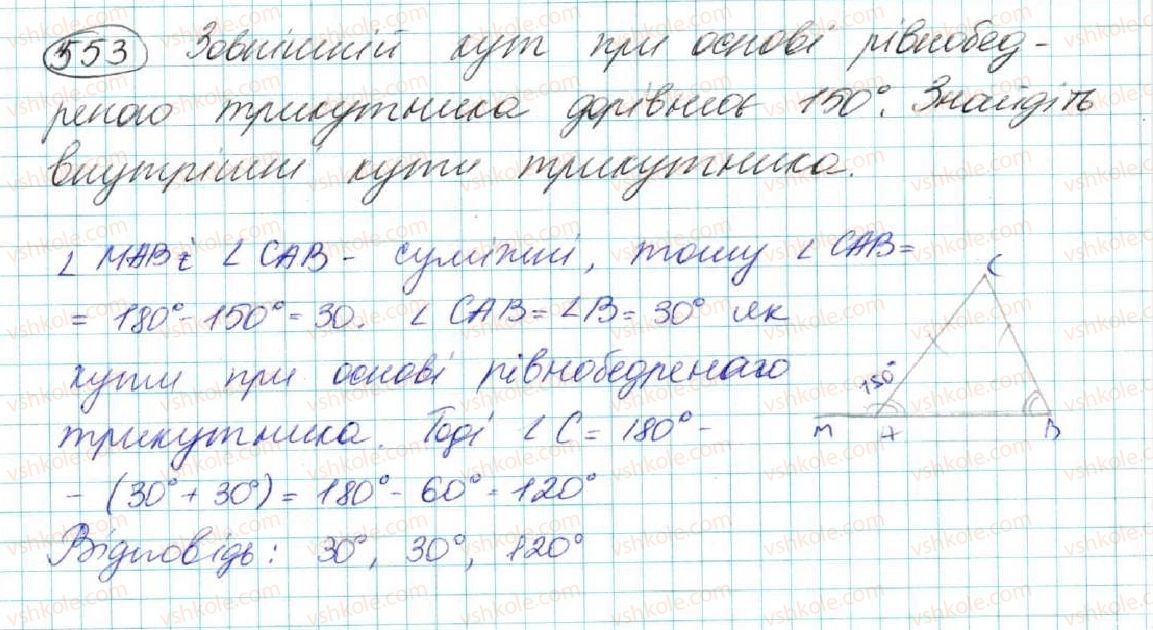 553 Зовнішній кут при основі рівнобед-
реного трикутника дорівнює 150°. Знайдіть
внутрішні кути трикутника.
∠ MAB і ∠ CAB - суміжні, тому ∠ CAB =
= 180° - 150° = 30. ∠ CAB = ∠B = 30° як
кути при основі рівнобедреного
трикутника. Тоді ∠ C = 180° -
- (30° + 30°) = 180° - 60° = 120°
Відповідь: 30°, 30°, 120°
C
150°
M A B
vshkole.com